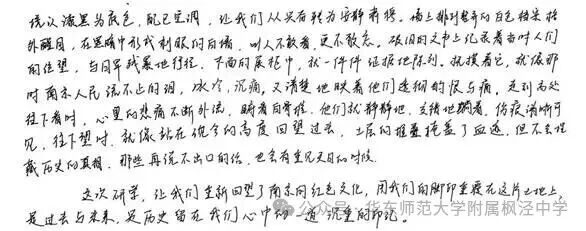 馆以漆黑为底色，配已空调，让我们从兴奋转为安静肃穆。墙上排列整齐的白色档案格
外醒目，在黑暗中形成刺眼的白墙，叫人不敢看，更不敢忘。破旧的文书上纪录着当时人们
的绝望，与日军残暴地行径。下面的展柜中，就一件件证据地陈列。抚摸着它，就像那
时南京人民流不止的泪，冰冷，沉痛，又清楚地映着他们遗物的恨与痛。走到高处
往下看时，心里的悲痛不断外流，瞧着白骨堆，他们就静静地，支绪地躺着，伤痕清晰可
见，往下望时，就像站在现今的高度回望过去，土层的堆叠掩盖了血迹，但不会埋
藏历史的真相，那些再说不出口的话，也会有重见天日的时候。
这次研学，让我们重新回望了南京间红色文化，用我们的脚印重覆在这片土地上，
是过去与未来，是历史留在我们心中的一道沉重的印记。
公众号·华东师范大学附属枫泾中学